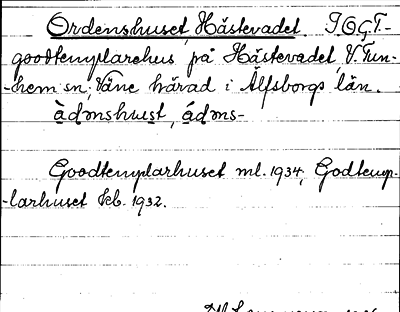 Ordenshuset, Hästevadet I.O.G.T.-
goodtemplarehus på Hästevadet, V. Tun-
-hem sn; Väne härad i Älfsborgs län.
Goodtemplarhuset ml. 1934, Godtemp-
-larhuset tkb. 1932.